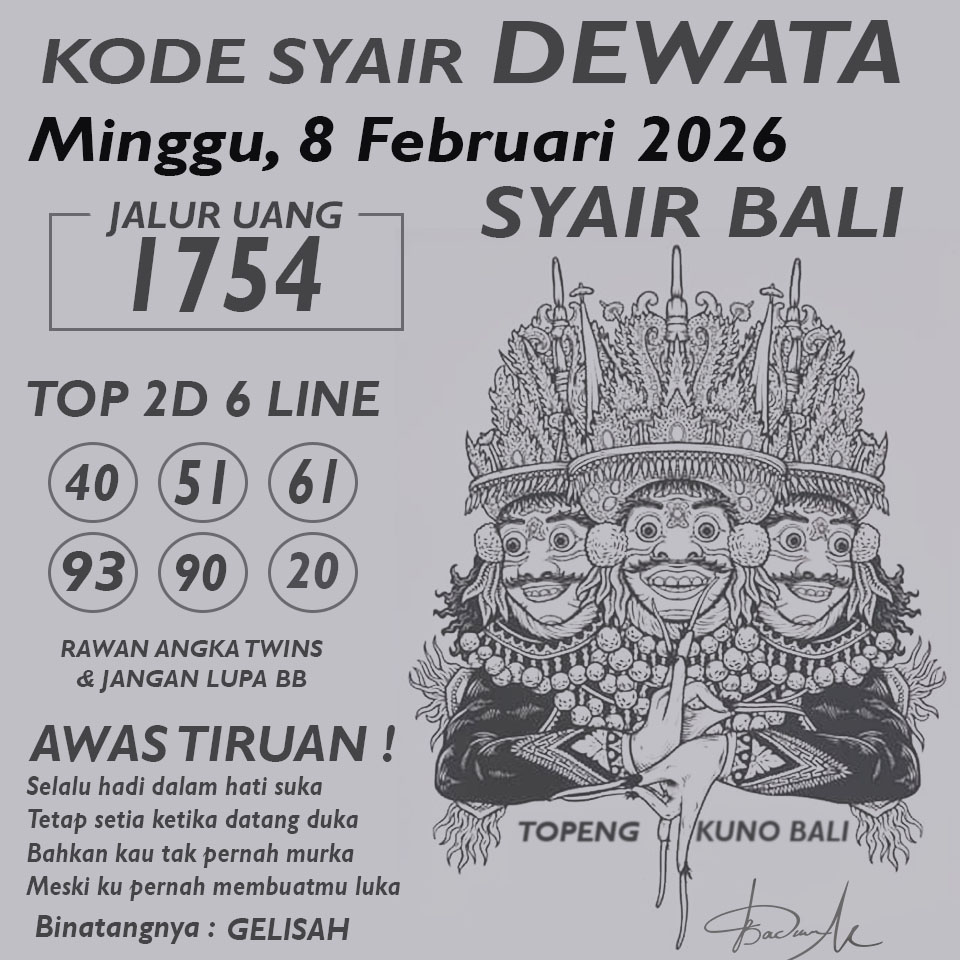 KODE SYAIR DEWATA
Minggu, 8 Februari 2026
SYAIR BALI
JALUR UANG
1754
TOP 2D 6 LINE
40 51 61
93 90 20
RAWAN ANGKA TWINS
& JANGAN LUPA BB
AWAS TIRUAN !
Selalu hadi dalam hati suka
Tetap setia ketika datang duka
Bahkan kau tak pernah murka
Meski ku pernah membuatmu luka
Binatangnya : GELISAH
TOPENG KUNO BALI